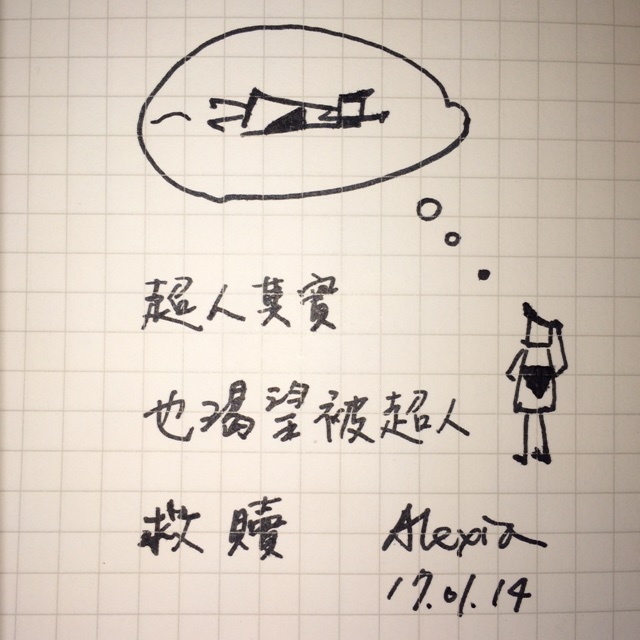 超人其實
也渴望被超人
救贖
Alexia
17.01.14